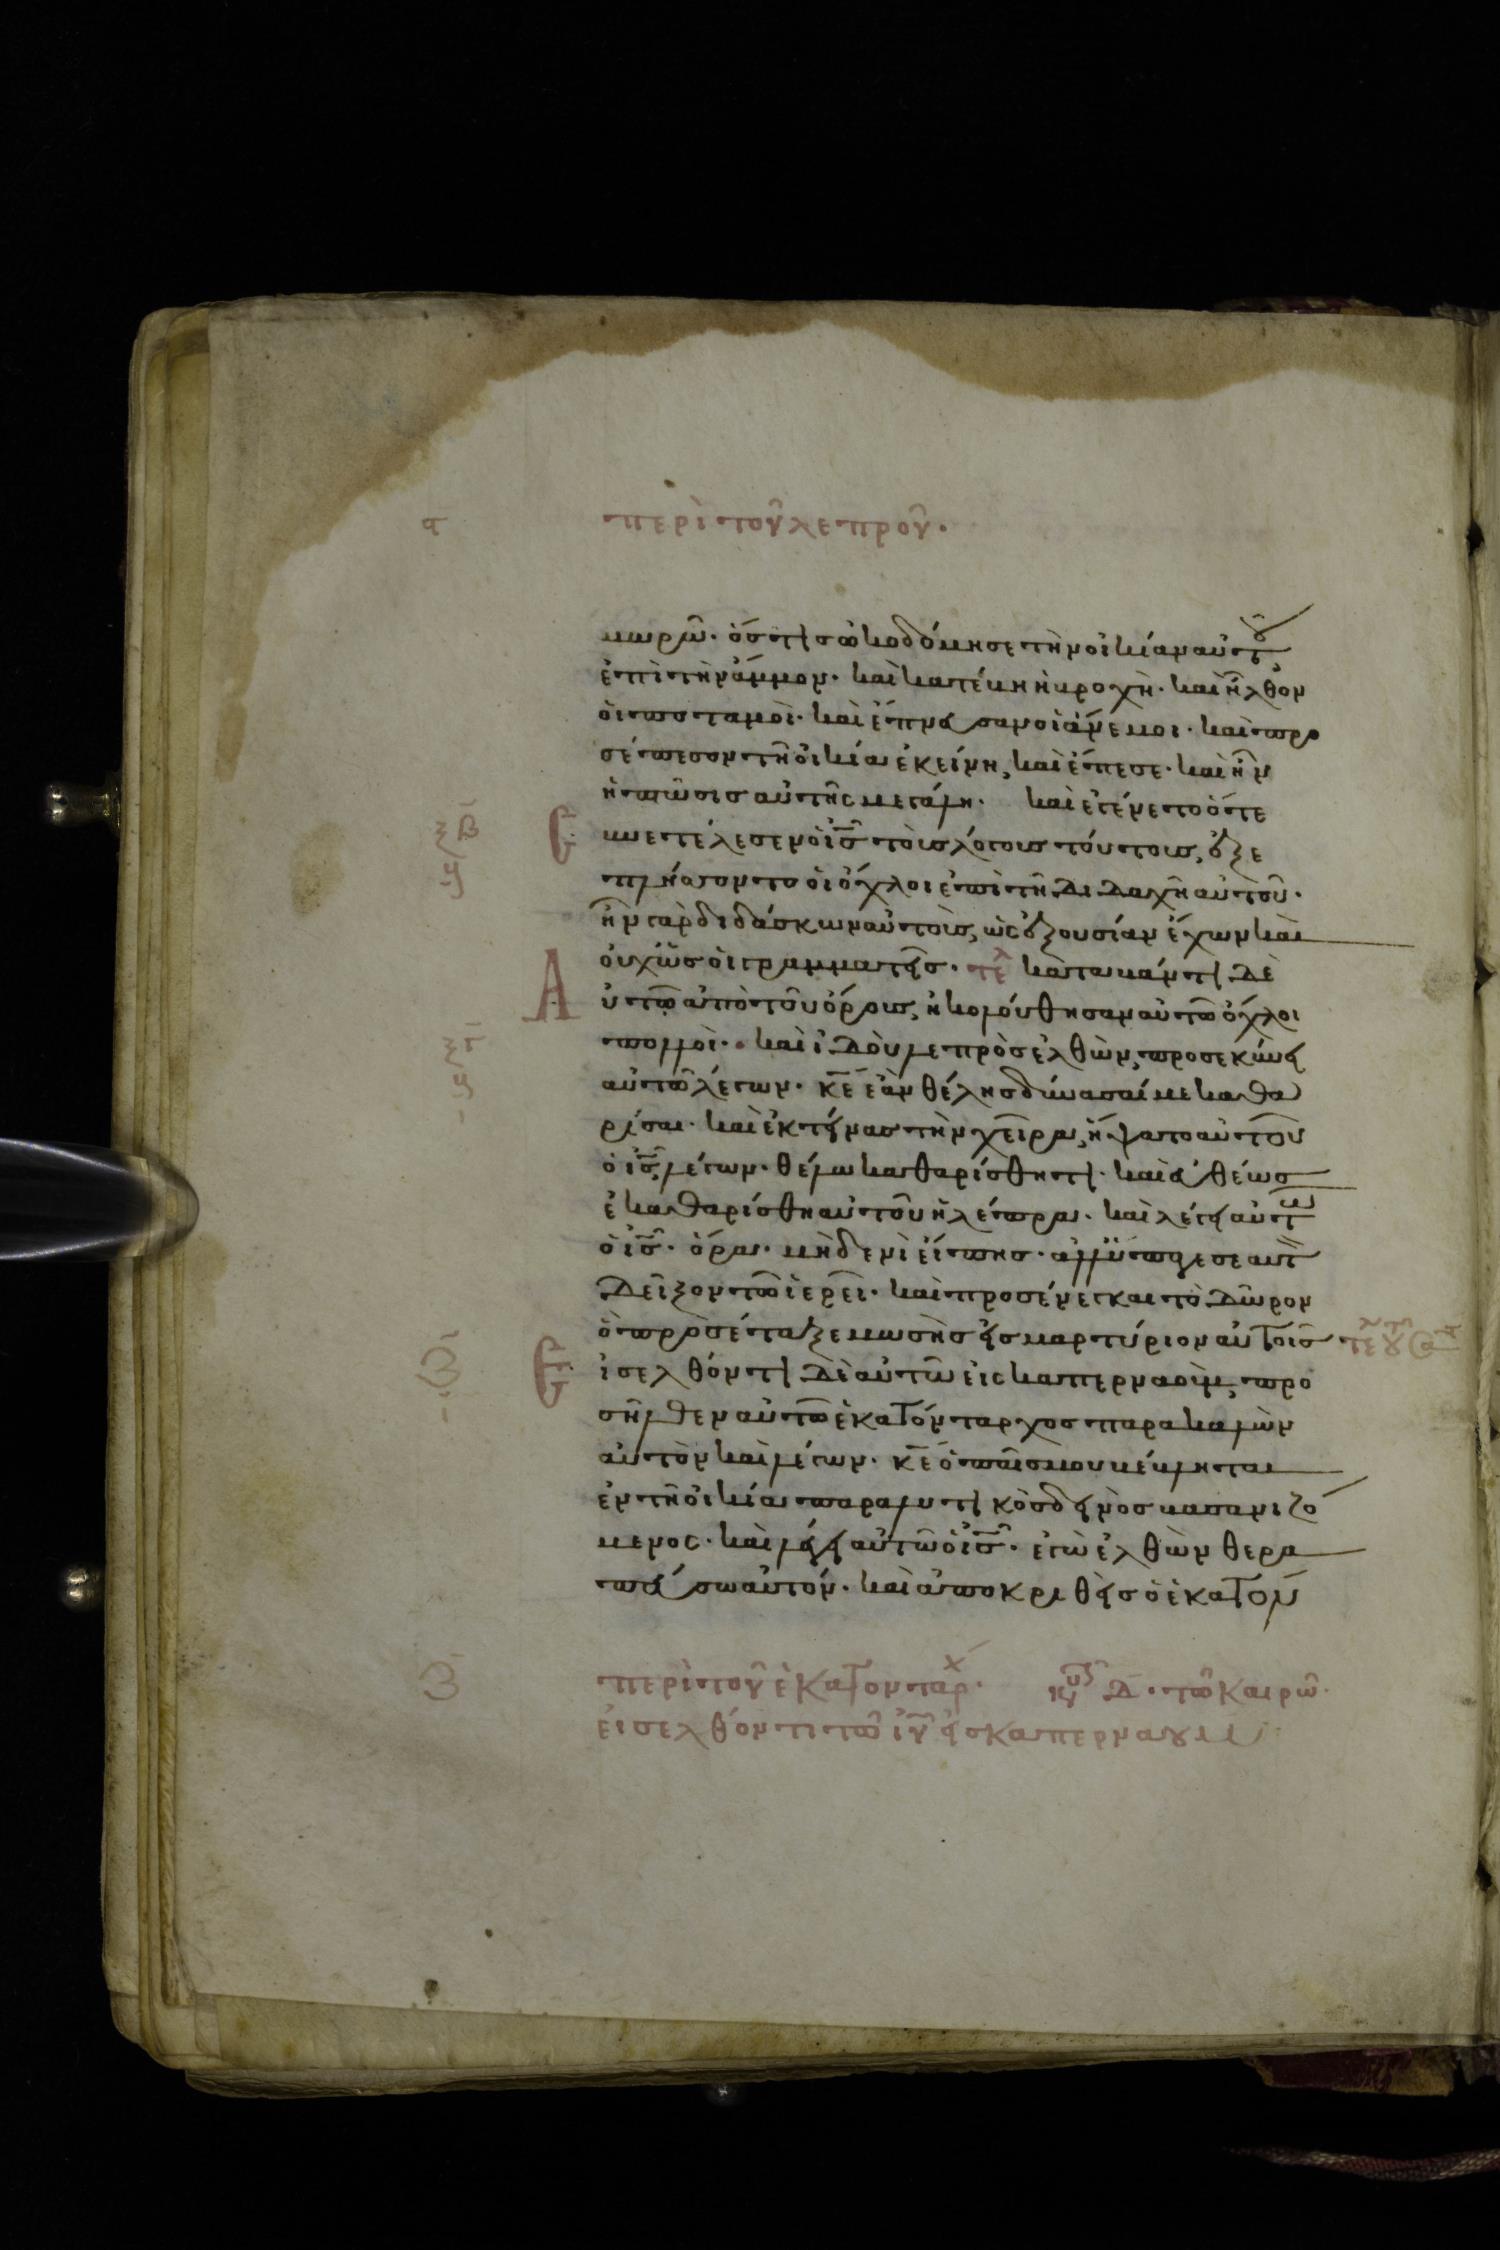 ϛ περὶ τοῦ λεπροῦ.
μωρῶ. ὅστις ὠκοδόμησε τὴν οἰκίαν αὐτοῦ
ἐπὶ τὴν ἄμμον. καὶ κατέβη ἡ βροχὴ. καὶ ἦλθον
οἱ ποταμοὶ. καὶ ἔπνευσαν οἱ ἄνεμοι. καὶ προ
σέπεσον τῆ οἰκία ἐκείνη, καὶ ἔπεσε. καὶ ἦν
ἡ πτῶσις αὐτῆς μεγάλη. καὶ ἐγένετο ὅτε
ξβ συνετέλεσεν ὁ ις τοὺς λόγους τούτους, ἐξε
πλήσσοντο οἱ ὄχλοι ἐπὶ τῆ διδαχῆ αὐτοῦ.
ἦν γὰρ διδάσκων αὐτοὺς, ὡς ἐξουσίαν ἔχων καὶ
οὐχ ὡς οἱ γραμματεῖς. τε κατακάντι δὲ
αὐτῶ ἀπὸ τοῦ ὄρους, ἠκολούθησαν αὐτῶ ὄχλοι
πολλοὶ. καὶ ἰδοὺ λεπρὸς ἐλθὼν, προσεκύνει
αὐτῶ λέγων. κε ἐὰν θέλης δύνασαί με καθα
ρίσαι. καὶ ἐκτείνας τὴν χεῖρα, ἥψατο αὐτοῦ
ὁ ις, λέγων. θέλω καθαρίσθητι. καὶ εὐθέως
ἐκαθαρίσθη αὐτοῦ ἡ λέπρα. καὶ λέγει αὐτῶ
ὁ ις. ὅρα. μηδενὶ εἴπης. ἀλλ' ὕπαγε σεαυτ
δεῖξον τῶ ἱερεῖ. καὶ προσένεγκαι τὸ δῶρον
ὃ προσέταξε μωσῆς εἰς μαρτύριον αὐτοῖς
Εἰσελθόντι δὲ αὐτῶ εἰς καπερναοὺμ, προ
σῆλθεν αὐτῶ ἑκατόνταρχος παρακαλῶν
αὐτὸν καὶ λέγων. κε ὁ παῖς μου βέβληται
ἐν τῆ οἰκία παραλυτικὸς δεινῶς βασανιζό
μενος. καὶ λέγει αὐτῶ ὁ ις. ἐγὼ ἐλθὼν θερα
πεύσω αὐτόν. καὶ ἀποκριθεὶς ὁ ἑκατόν
ζ περὶ τοῦ ἑκατοντάρχ. κυ δ. τῶ καιρῶ.
εἰσελθόντι τῶ ιυ εἰς καπερναουμ